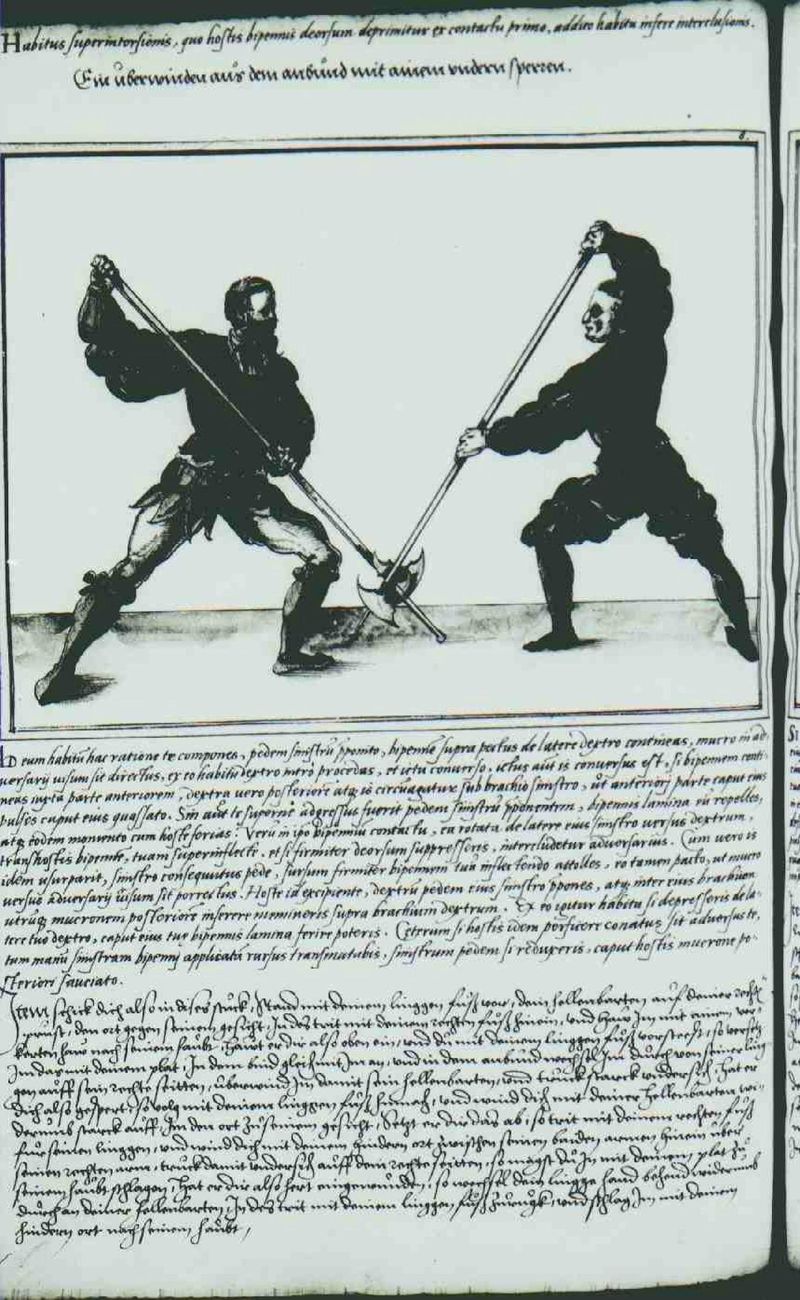 Habitus superintorsionis, quo hostis bipennis deorsum deprimitur ex contactu primo, addito habitu infere interclusionis.
Ein ůberwinden aůs dem anbůnd mit ainem vndern sperren.
8.
AD eum habitũ hac ratione te compones, pedem sinistrũ pponito, bipennẽ supra pectus de latere dextro contineas, mucro in ad-
versarij uisum sit directus, ex eo habitu dextro intrò procedas, et ictu converso, ictus aut is conversus est, si bipennem conti-
neas iuxta parte anteriorem, dextra vero posteriore atq; eò circũagatur sub brachio sinistro, ut anteriori parte caput eius
pulsos caput eius quassato. Sin aut te supernè adgressus fuerit pedem sinistrũ pponentem, bipennis lamina eũ repelles,
atq; eodem momento cum hoste ferias: Verũ in ipo bipenniũ contactu, ea rotata de latere eius sinistro versus dextrum,
transhostis bipenne, tuam superinflecti, et si firmiter deorsum suppresseris, intercludetur adversarius. Cùm vero is
idem usurparit, sinistro consequutus pede, sursum firmiter bipennem tuã inflectendo attolles, eo tamen pacto, ut mucro
versus adversarij uisum sit porrectus. Hoste id excipiente, dextrũ pedem eius sinistro ppones, atq; inter eius brachium
utrũq; mucronem posteriorem inserere memineris supra brachium dextrum. Ex eo igitur habitu si depresseris de la-
tere tuo dextro, caput eius tuę bipennis lamina ferire poteris. Ceterum si hostis idem perficere conatus sit adversus te,
tum manũ sinistram bipenni applicatã rursus transmutabis, sinistrum pedem si reduxeris, caput hostis mucrone po-
steriori sauciato.
Item schick dich also in dises stuck, stand mit deinem linggen fuͦß vor, dein hellenbarten auf deiner rechtẽ
prust, den ort gegen seinem gesicht, Indes trit mit deinem rechten fuͦß hinein, vnd haw Im mit ainem ver-
karten haw nach seinem haubt. Hawt er dir also oben ein, vnd du mit deinem linggen fuͦß vorsteest, so versetz
Im das mit deinem plat, In dem bind gleich mit Im an, vnd in dem anbund wechsl Im durch von seiner ling
gen auff sein rechte seitten, ůberwind Im damit sein hellenbarten, vnd truck starck vndersich, Hat er
dich also gespert, so volg mit deinem linggen fuͦß hinnach, vnd wind dich mit deiner hellenbarten wi-
derumb starck auff, Im den ort zu seinem gesicht, Setzt er dir das ab, so trit mit deinem rechten fuͦß
fur seinen linggen, vnd wind dich mit deinem hindern ort zwischen seinen baiden armen hinein ůber
seinen rechten arm, truck damit vndersich auff dein rechte seitten, so magst du In mit deinem plat zu
seinem haubt schlagen, Hat er dir also hert eingewunden, so wechsel dein lingge hand behend widerumb
durch an deiner hellenbarten, Indes trit mit deinem linggen fuͦß zuruͦgk, vnd schlag In mit deinem
hindern ort nach seinem haubt,